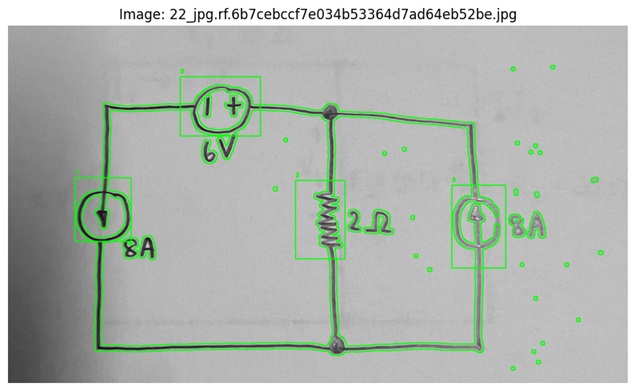 Image: 22_jpg.rf.6b7cebccf7e034b53364d7ad64eb52be.jpg
6V
8A
2Ω
8A